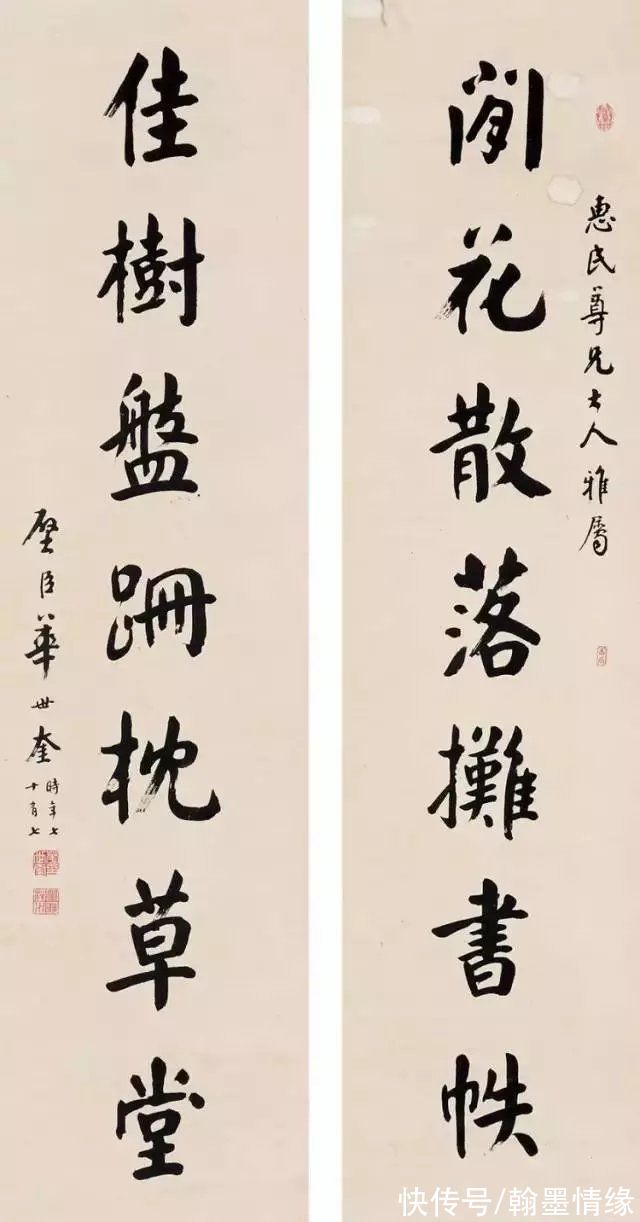 惠民尊兄大人雅屬
閒花散落攤書帙
佳樹盤跚枕草堂
璧臣華世奎
時年七
十有七
快传号/翰墨情缘